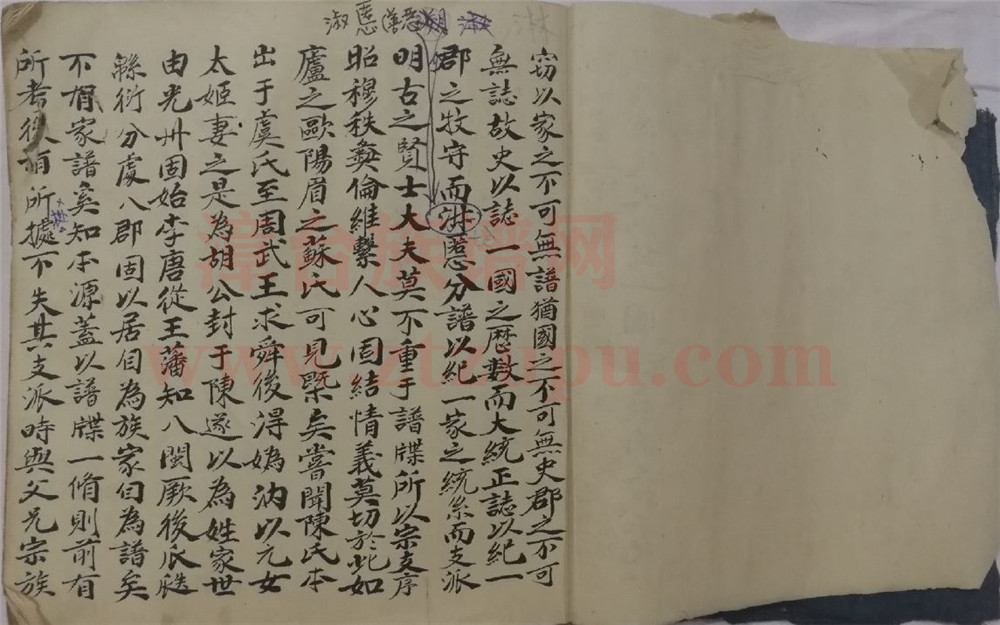 窃以家之不可無譜猶國之不可無史郡之不可
無誌故史以誌一國之歷數而大統正誌以紀一
郡之牧守而淑慝分譜以紀一家之統系而支派
明古之賢士大夫莫不重于譜牒所以宗支序
昭穆秩彜倫維繫人心固結情義莫切於此如
廬之歐陽眉之蘇氏可見槩矣嘗聞陳氏本
出于虞氏至周武王求舜後得媯汭以元女
太姬妻之是為胡公封于陳遂以為姓家世
由光州固始李唐從王藩知八閩厥後瓜瓞
綿衍分處八郡固以居自為族家自為譜矣
不有家譜奚知本源蓋以譜牒一脩則前有
所考後有所據不失其支派時與父兄宗族
淑慝
漳台族谱网
www.ztzupu.com